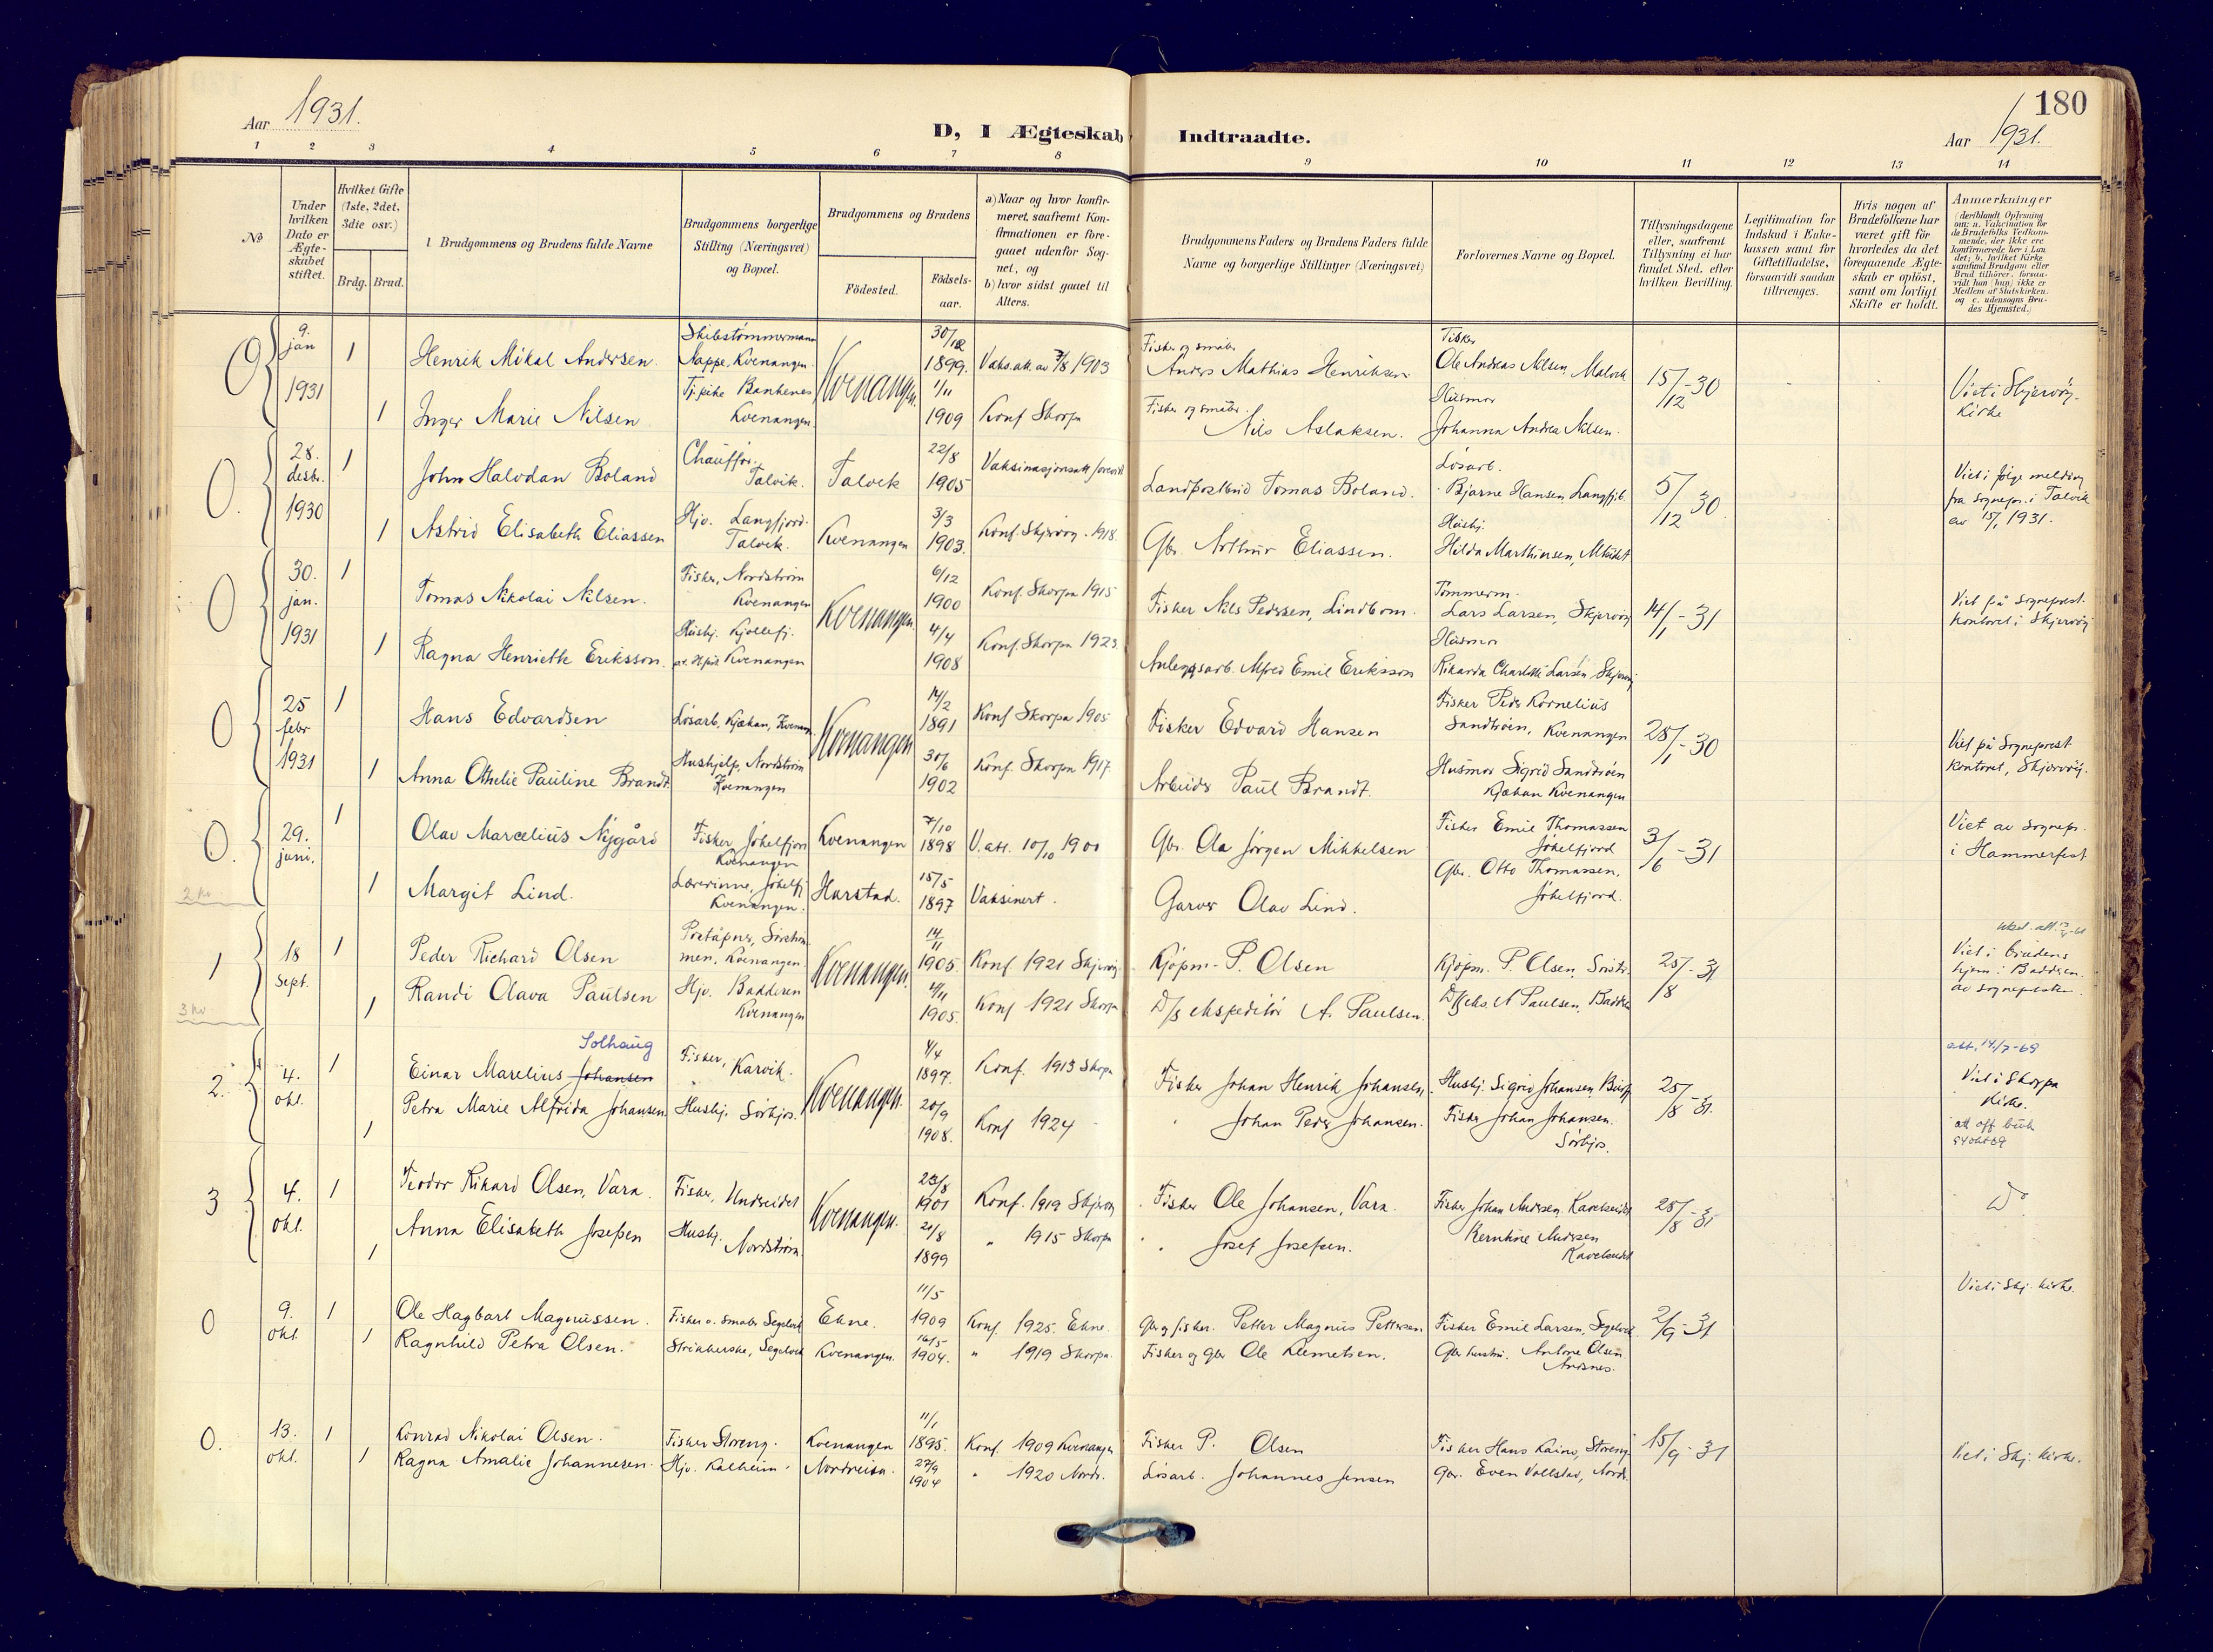 180
Aar 1931.
D, I Ægteskab Indtraadte.
Aar 1931.
1 2 3 4 5 6 7 8 9 10 11 12 13 14
№
Under hvilken Dato er Ægteskabet stiftet.
Hvilket Gifte (1ste, 2det, 3die osv.)
Brdg. Brud.
Brudgommens og Brudens fulde Navne
Brudgommens borgerlige Stilling (Næringsvei) og Bopæl.
Brudgommens og Brudens
Födested.
Födsels-aar.
a) Naar og hvor konfirmeret, saafremt Konfirmationen er foregaaet udenfor Sognet, og
b) hvor sidst gaaet til Alters.
Brudgommens Faders og Brudens Faders fulde Navne og borgerlige Stillinger (Næringsvei)
Forlovernes Navne og Bopæl.
Tillysningsdagene eller, saafremt Tillysning ei har fundet Sted, efter hvilken Bevilling.
Legitimation for Indskud i Enkekassen samt for Giftetilladelse, forsaavidt saadan tiltrænges.
Hvis nogen af Brudefolkene har været gift för hvorledes da det foregaaende Ægteskab er oplöst, samt om lovligt Skifte er holdt.
Anmærkninger
(deriblandt Oplysning om: a. Vakcination for de Brudefolks Vedkommende, der ikke ere konfirmerede her i Landet; b. hvilket Kirkesamfund Brudgom eller Brud tilhörer, forsaavidt han (hun) ikke er Medlem af Statskirken og c. udensogns Brudes Hjemsted.)
0 9. jan 1931 1 Henrik Mikal Andersen. Skibstømmermann Nappe, Kvenangen. Kvenangen. 30/12 1899. Vaks.att. av 7/8 1903 Fisker og småbr. Anders Mathias Henriksen Fisker Ole Andreas Nilsen, Malvik 15/12-30 Viet i Skjervøy kirke
1 Inger Marie Nilsen Tj.pike Bankenes Kvenangen. 1/11 1909 Konf Skorpa Fisker og småbr. Nils Aslaksen. Husmor Johanna Andrea Nilsen.
0. 28. desbr. 1930 1 John Halvdan Boland Chauffør. Talvik. Talvik 22/8 1905 Vaksinasjonsatt forevist Landpostbud Tomas Boland. Løsarb. Bjarne Hansen, Langfjb. 5/12 30. Viet i følge melding fra sognepr. i Talvik av 15/1 1931.
1 Astrid Elisabeth Eliassen Hjv. Langfjord. Talvik. Kvenangen 3/3 1903. Konf. Skjervøy. 1918. Gbr. Arthur Eliassen. Hushj. Hilda Marthinsen,
0 30. jan. 1931 1 Tomas Nikolai Nilsen. Fisker, Nordstrøm Kvenangen Kvenangen. 6/12 1900 Konf. Skorpa 1915 Fisker Nils Pedersen, Lindbom. Tømmerm. Lars Larsen, Skjervøy 14/1-31 Viet på sogneprest-kontoret i Skjervøy
1 Ragna Henriette Eriksson. Hushj. Kjollefj. Kvenangen 4/4 1908 Konf. Skorpa 1923. Anleggsarb. Alfred Emil Eriksson Husmor Rikarda Charlotte Larsen Skjervøy
0 25 febr 1931 1 Hans Edvardsen Løsarb, Kjækan, Kvenang. Kvenangen 14/2 1891 Konf Skorpa 1905 Fisker Edvard Hansen Fisker Peder Kornelius Sandtrøen, Kvenangen 28/1-30 Viet på Sogneprest kontoret, Skjervøy.
1 Anna Othelie Pauline Brandt. Hushjelp, Nordstrøm Kvenangen 30/6 1902 Konf. Skorpa 1917. Arbeider Paul Brandt. Husmor Sigrid Sandtrøen Kjækan Kvenangen
0. 29. juni. 1 Olav Marcelius Nygård Fisker Jøkelfjord Kvenangen Kvenangen 7/10 1898 V.att. 10/10 1900 Gbr. Ola Jørgen Mikkelsen Fisker Emil Thomassen Jøkelfjord 3/6-31 Viet av Sognepr. i Hammerfest
2 kv 1 Margit Lind. Lærerinne, Jøkelfj. Kvenangen. Harstad. 15/5 1897 Vaksinert. Garver Olav Lind. Gbr. Otto Thomassen, Jøkelfjord.
1 18 Sept. 1 Peder Richard Olsen Poståpner, Sørstrømmen, Kvenangen Kvenangen. 14/11 1905. Konf. 1921 Skjervøy Kjøpm. P. Olsen Kjøpm. P. Olsen, Sørstr. 25/8-31 Viet i brudens hjem i Badderen. av sognepresten.
3 kv 1 Randi Olava Paulsen Hjv. Badderen Kvenangen 4/11 1905. Konf 1921 Skorpa D/s ekspeditør A. Paulsen. D/s eks. A Paulsen, Badderen
2. 4. okt. 1 Einar Marelius Johansen Solhaug Fisker, Karvik. Kvenangen. 4/4 1897. Konf. 1913 Skorpa Fisker Johan Henrik Johansen, Hushj. Sigrid Johansen, 25/8-31. att. 14/7-69 Viet i Skorpa kirke.
1 Petra Marie Alfrida Johansen Hushj. Sørkjos. 20/9 1908. Konf 1924 " Johan Peder Johansen. Fisker Johan Johansen. Sørkjos.
3 4. okt. 1 Teodor Rikard Olsen, Vara. Fisker, Undereidet Kvenangen. 23/8 1901 Konf. 1919 Skjervøy Fisker Ole Johansen, Vara. Fisker Johan Andersen, 25/8-31 Do
1 Anna Elisabeth Josefsen Hushj. Nordstrøm 21/8 1899 " 1915 Skorpa " Josef Josefsen. Andersen
0 9. okt. 1 Ole Hagbart Magnussen. Fisker o. småbr Segelvik Ekne. 11/5 1909 Konf. 1925. Ekne. Gbr og fisker. Petter Magnus Pettersen Fisker Emil Larsen, Segelvik 2/9-31 Viet i Skj. kirke.
1 Ragnhild Petra Olsen. Strikkerske, Segelvik Kvenangen. 16/5 1904. " 1919 Skorpa. Fisker og gbr Ole Klemetsen. Gbr hustru. Antone Olsen. Andsnes.
0. 13. okt. 1 Konrad Nikolai Olsen. Fisker Storeng. Kvenangen 11/1 1895. Konf. 1909 Kvenangen Fisker P. Olsen Fisker Hans Kaino, Storeng 15/9-31 Viet i Skj. kirke.
1 Ragna Amalie Johannesen. Hjv. Kalheim. Nordreisa. 27/9 1904 " 1920 Nordr. Løsarb. Johannes Jensen Gbr. Even Vollstad, Nordr.